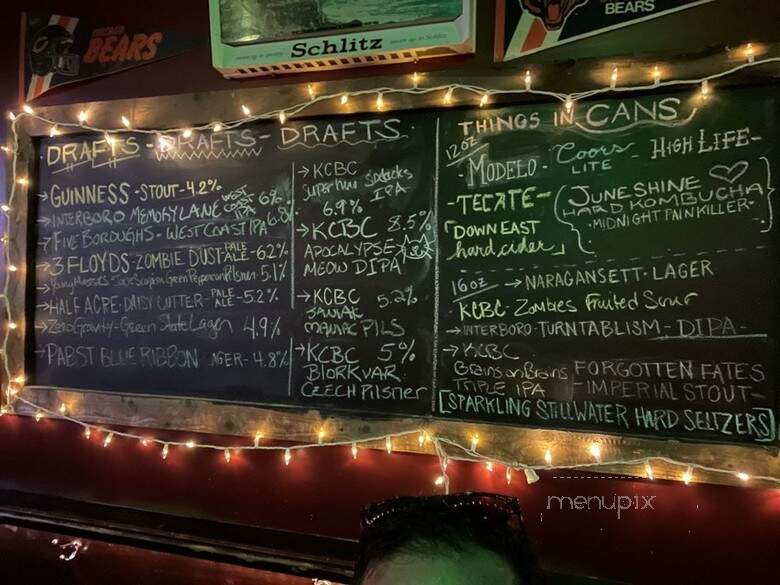 BEARS
BEARS
Schlitz
DRAFTS - DRAFTS - DRAFTS
→ GUINNESS - STOUT - 4.2%
→ INTERBORO MEMORY LANE WEST COAST IPA 6%
→ FIVE BOROUGHS - WEST COAST IPA 6.8%
→ 3 FLOYDS - ZOMBIE DUST PALE ALE - 6.2%
Green Peppercorn Pilsner 5.1%
→ HALF ACRE - DAISY CUTTER - PALE ALE - 5.2%
→ Zero Gravity - Green State Lager 4.9%
→ PABST BLUE RIBBON LAGER - 4.8%
→ KCBC
IPA
6.9%
→ KCBC 8.5%
APOCALYPSE
MEOW DIPA
→ KCBC 5.2%
MANIAC PILS
→ KCBC 5%
BIORKVAR
CZECH PILSNER
THINGS IN CANS
12oz
- MODELO - Coors LITE - HIGH LIFE -
- TECATE -
"DOWNEAST
hard cider"
JUNESHINE
HARD KOMBUCHA
- MIDNIGHT PAINKILLER -
16oz
→ NARAGANSETT - LAGER
KCBC - Zombies Fruited Sour
→ INTERBORO - TURNTABLISM - DIPA -
→ KCBC
Brains on Brains
TRIPLE IPA
FORGOTTEN FATES
- IMPERIAL STOUT -
[SPARKLING STILLWATER HARD SELTZERS]
menupix